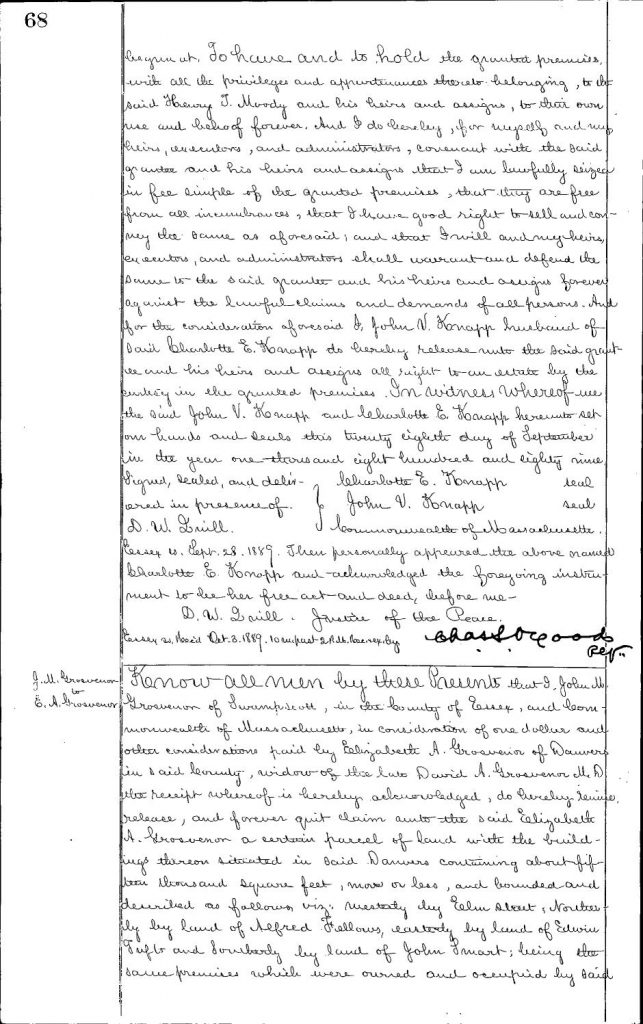 68
begun at. To have and to hold the granted premises,
with all the privileges and appurtenances thereto belonging, to the
said Henry T. Moody and his heirs and assigns, to their own
use and behoof forever. And I do hereby, for myself and my
heirs, executors, and administrators, covenant with the said
grantee and his heirs and assigns that I am lawfully seized
in fee simple of the granted premises, that they are free
from all incumbrances, that I have good right to sell and con-
vey the same as aforesaid; and that I will and my heirs,
executors, and administrators shall warrant and defend the
same to the said grantee and his heirs and assigns forever
against the lawful claims and demands of all persons. And
for the consideration aforesaid I, John V. Knapp husband of
said Charlotte E. Knapp do hereby release unto the said grant-
ee and his heirs and assigns all right to an estate by the
curtesy in the granted premises. In witness whereof we
the said John V. Knapp and Charlotte E. Knapp hereunto set
our hands and seals this twenty eighth day of September
in the year one thousand eight hundred and eighty nine
Signed, sealed, and deliv- Charlotte E. Knapp seal
ered in presence of. John V. Knapp seal
D. W. Quill. Commonwealth of Massachusetts.
Essex ss. Sept. 28. 1889. Then personally appeared the above named
Charlotte E. Knapp and acknowledged the foregoing instru-
ment to be her free act and deed, before me-
D. W. Quill. Justice of the Peace.
Essex ss. Rec'd Oct. 3. 1889. 10 m past 2 P.M. Rec. & Ex. by Chas. S. Osgood Reg.
J. M. Grosvenor
to
E. A. Grosvenor
Know all men by these Presents that I, John M.
Grosvenor of Swampscott, in the County of Essex, and Com-
monwealth of Massachusetts, in consideration of one dollar and
other considerations paid by Elizabeth A. Grosvenor of Danvers
in said County, widow of the late David A. Grosvenor M.D.
the receipt whereof is hereby acknowledged, do hereby remise,
release, and forever quit claim unto the said Elizabeth
A. Grosvenor a certain parcel of land with the build-
ings thereon situated in said Danvers containing about fif-
teen thousand square feet, more or less, and bounded and
described as follows, viz: westerly by Elm street, Norther-
ly by land of Alfred Fellows, easterly by land of Edwin
Tufts and Southerly by land of John Smart; being the
same premises which were owned and occupied by said